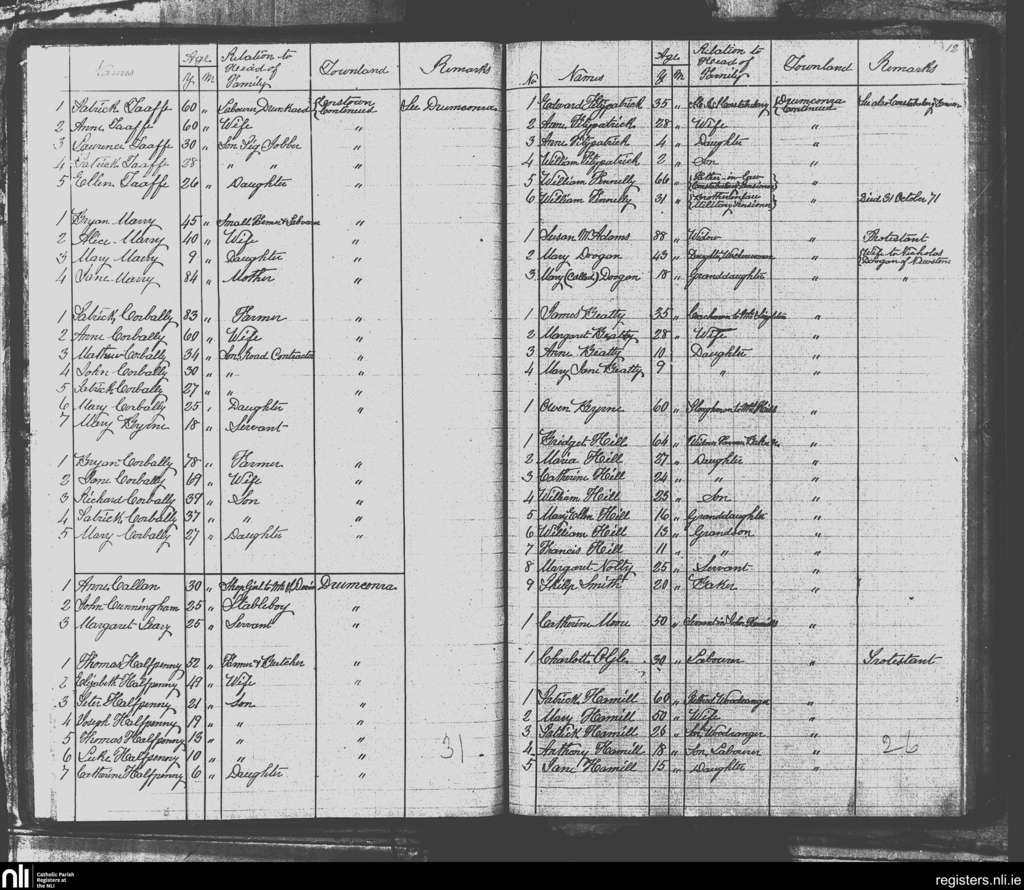 Names Age Y. M Relation to Head of Family Townland Remarks
1 Patrick Taaffe 60 „ Labourer, Drunkard Continued See Drumconra
2 Anne Taaffe 60 „ Wife „
3 Laurence Taaffe 30 „ Son Pig Jobber „
4 Patrick Taaffe 28 „ „ „ „
5 Ellen Taaffe 26 „ Daughter „
1 Bryan Marry 45 „ Small Farmer & Labourer „
2 Alice Marry 40 „ Wife „
3 Mary Marry 9 „ Daughter „
4 Jane Marry 84 „ Mother „
1 Patrick Corbally 83 „ Farmer „
2 Anne Corbally 60 „ Wife „
3 Mathew Corbally 34 „ Son, Road Contractor „
4 John Corbally 30 „ „ „
5 Patrick Corbally 27 „ „ „
6 Mary Corbally 25 „ Daughter „
7 Mary Byrne 18 „ Servant
1 Bryan Corbally 78 „ Farmer „
2 Jane Corbally 69 „ Wife „
3 Richard Corbally 39 „ Son „
4 Patrick Corbally 37 „ „ „
5 Mary Corbally 27 „ Daughter „
1 Anne Callan 30 „ Shop Girl to Drumconra
2 John Cunningham 25 „ Stableboy „
3 Margaret Geary 25 „ Servant „
1 Thomas Halfpenny 52 „ Farmer & Butcher „
2 Elizabeth Halfpenny 49 „ Wife „
3 Peter Halfpenny 21 „ Son „
4 Joseph Halfpenny 19 „ „ „
5 Thomas Halfpenny 13 „ „ „
6 Luke Halfpenny 10 „ „ „
7 Catherine Halfpenny 6 „ Daughter „
31
12
No Names Age Y M Relation to Head of Family Townland Remarks
1 Edward Fitzpatrick 35 „ Constabulary Drumconra Continued
2 Anne Fitzpatrick 28 „ Wife „
3 Anne Fitzpatrick 4 „ Daughter „
4 William Fitzpatrick 2 „ Son „
5 William 66 „ Father-in-law Constabulary Pensioner „
6 William 31 „ Brother in law Military Pensioner „ Died 31 October 71
1 Susan McAdams 88 „ Widow „ Protestant
2 Mary Drogan 43 „ Daughter „ Wife to Nicholas Drogan of
3 Mary Drogan 18 „ Granddaughter „ „
1 James Beatty 35 „ Coachman to „
2 Margaret Beatty 28 „ Wife „
3 Anne Beatty 10 „ Daughter „
4 Mary Jane Beatty 9 „ „
1 Owen Byrne 60 „ Ploughman to „
1 Bridget Hill 64 „ Widow Farmer Baker „
2 Maria Hill 27 „ Daughter „
3 Catherine Hill 24 „ „ „
4 William Hill 25 „ Son „
5 Mary Ellen Hill 16 „ Granddaughter „
6 William Hill 13 „ Grandson „
7 Francis Hill 11 „ „ „
8 Margaret Nolty 25 „ Servant „
9 Philip Smith 20 „ Baker „
1 Catherine Moore 50 „ Servant „
1 Charlott 30 „ Labourer „ Protestant
1 Patrick Hamill 60 „ Retired Woodranger „
2 Mary Hamill 50 „ Wife „
3 Patrick Hamill 26 „ Son Woodranger „
4 Anthony Hamill 18 „ Son, Labourer „
5 Jane Hamill 15 „ Daughter „
26
nli Catholic Parish Registers at the NLI
registers.nli.ie